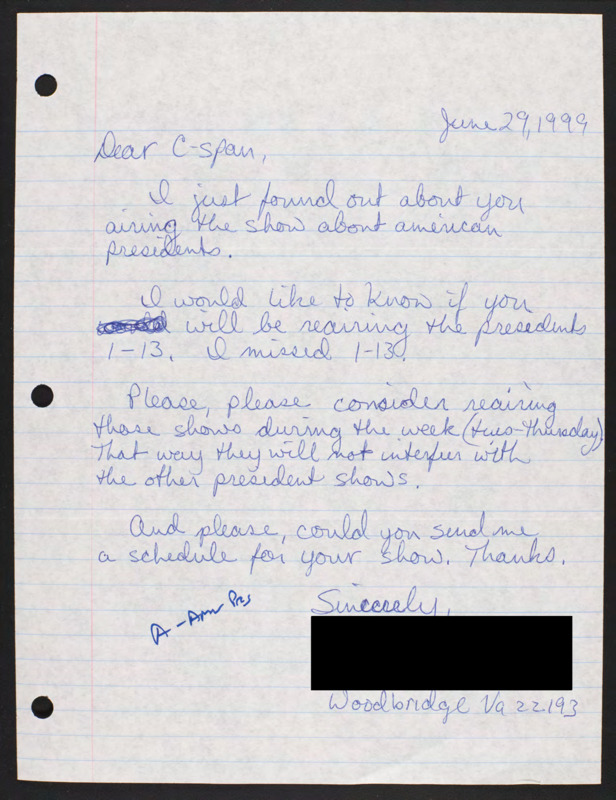 June 29, 1999
Dear C-span,
I just found out about you
airing the show about american
presidents.
I would like to know if you
will be reairing the presedents
1-13. I missed 1-13.
Please, please consider reairing
those shows during the week (tues-Thursday)
That way they will not interfer with
the other president shows.
And please, could you send me
a schedule for your show. Thanks.
Sincerely,
A - Amer Pres
Woodbridge Va 22193